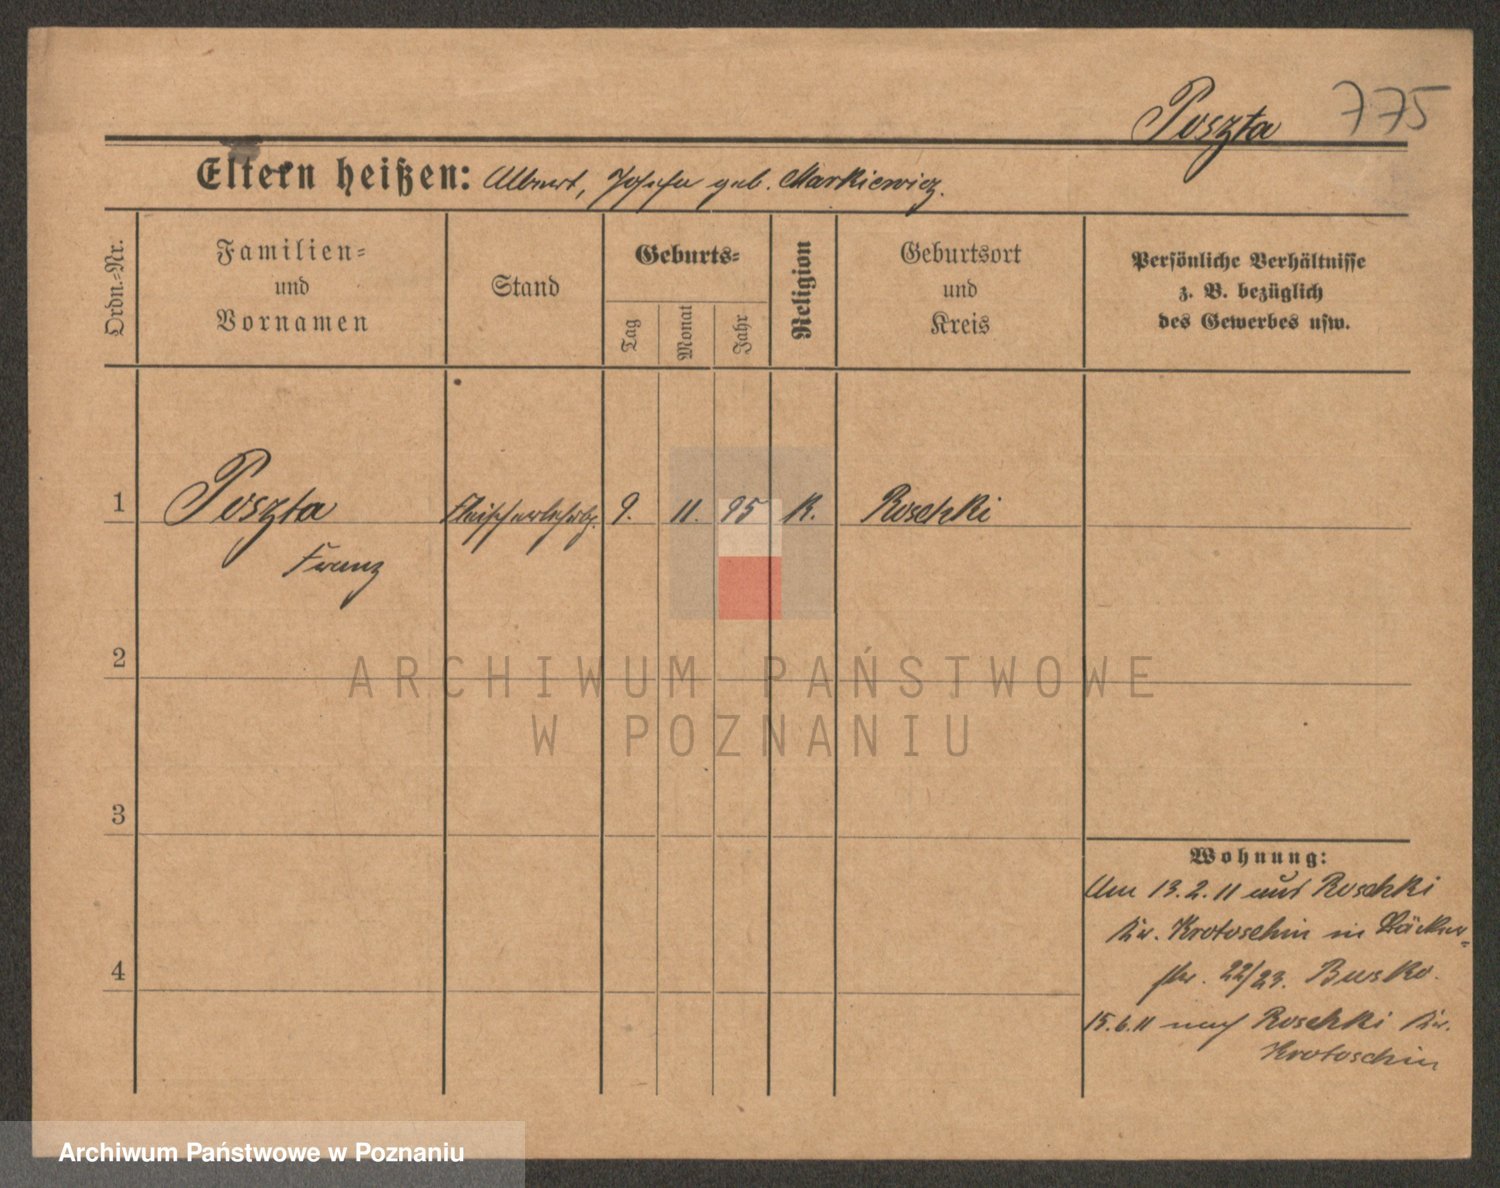 Poszta 775
Eltern heißen: Albert, Josefa geb. Markiewicz.
Ordn.-Nr.
Familien-
und
Vornamen
Stand
Geburts-
Tag
Monat
Jahr
Religion
Geburtsort
und
Kreis
Persönliche Verhältnisse
z. B. bezüglich
des Gewerbes usw.
1 Poszta Fleischerlehrlg. 9. 11. 95 K. Roschki
Franz
2
3
4
Wohnung:
Am 13.2.11 aus Roschki
Kr. Krotoschin in Bäcker-
str. 22/23. Busko.
15.6.11 nach Roschki Kr.
Krotoschin
ARCHIWUM PAŃSTWOWE
W POZNANIU
Archiwum Państwowe w Poznaniu